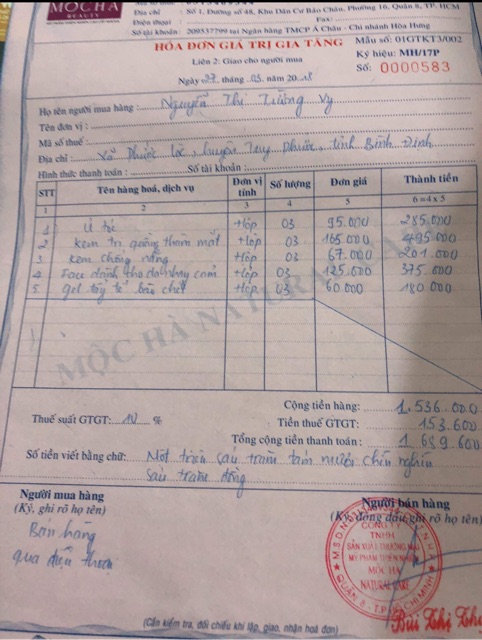 MỘC HÀ
BEAUTY
Địa chỉ : Số 1, Đường số 48, Khu Dân Cư Bảo Châu, Phường 16, Quận 8, TP. HCM
Điện thoại : Fax:
Số tài khoản : 209537799 tại Ngân hàng TMCP Á Châu - Chi nhánh Hòa Hưng
HÓA ĐƠN GIÁ TRỊ GIA TĂNG
Mẫu số: 01GTKT3/002
Liên 2: Giao cho người mua
Ký hiệu: MH/17P
Ngày 27 tháng 03 năm 2018
Số: 0000583
Họ tên người mua hàng : Nguyễn Thị Tường Vy
Tên đơn vị :
Mã số thuế :
Địa chỉ : Xã Phước Lộc, huyện Tuy Phước, tỉnh Bình Định
Hình thức thanh toán : Số tài khoản:
STT Tên hàng hoá, dịch vụ Đơn vị tính Số lượng Đơn giá Thành tiền
1 2 3 4 5 6 = 4 x 5
1 Ủ tóc Hộp 03 95.000 285.000
2 kem trị quầng thâm mắt Hộp 03 165.000 495.000
3 kem chống nắng Hộp 03 67.000 201.000
4 Face dành cho da nhạy cảm Hộp 03 125.000 375.000
5 gel tẩy tế bào chết Hộp 03 60.000 180.000
MỘC HÀ NATURAL CARE
Cộng tiền hàng: 1.536.000
Thuế suất GTGT: 10 % Tiền thuế GTGT: 153.600
Tổng cộng tiền thanh toán: 1 689.600
Số tiền viết bằng chữ: Một triệu sáu trăm tám mươi chín nghìn
sáu trăm đồng
Người mua hàng
(Ký, ghi rõ họ tên)
Bán hàng
qua điện thoại
Người bán hàng
(Ký, đóng dấu, ghi rõ họ tên)
CÔNG TY
TNHH
SẢN XUẤT THƯƠNG MẠI
MỸ PHẨM THIÊN NHIÊN
MỘC HÀ
NATURAL CARE
QUẬN 8 - T.P HỒ CHÍ MINH
Bùi Thị
(Cần kiểm tra, đối chiếu khi lập, giao, nhận hoá đơn)